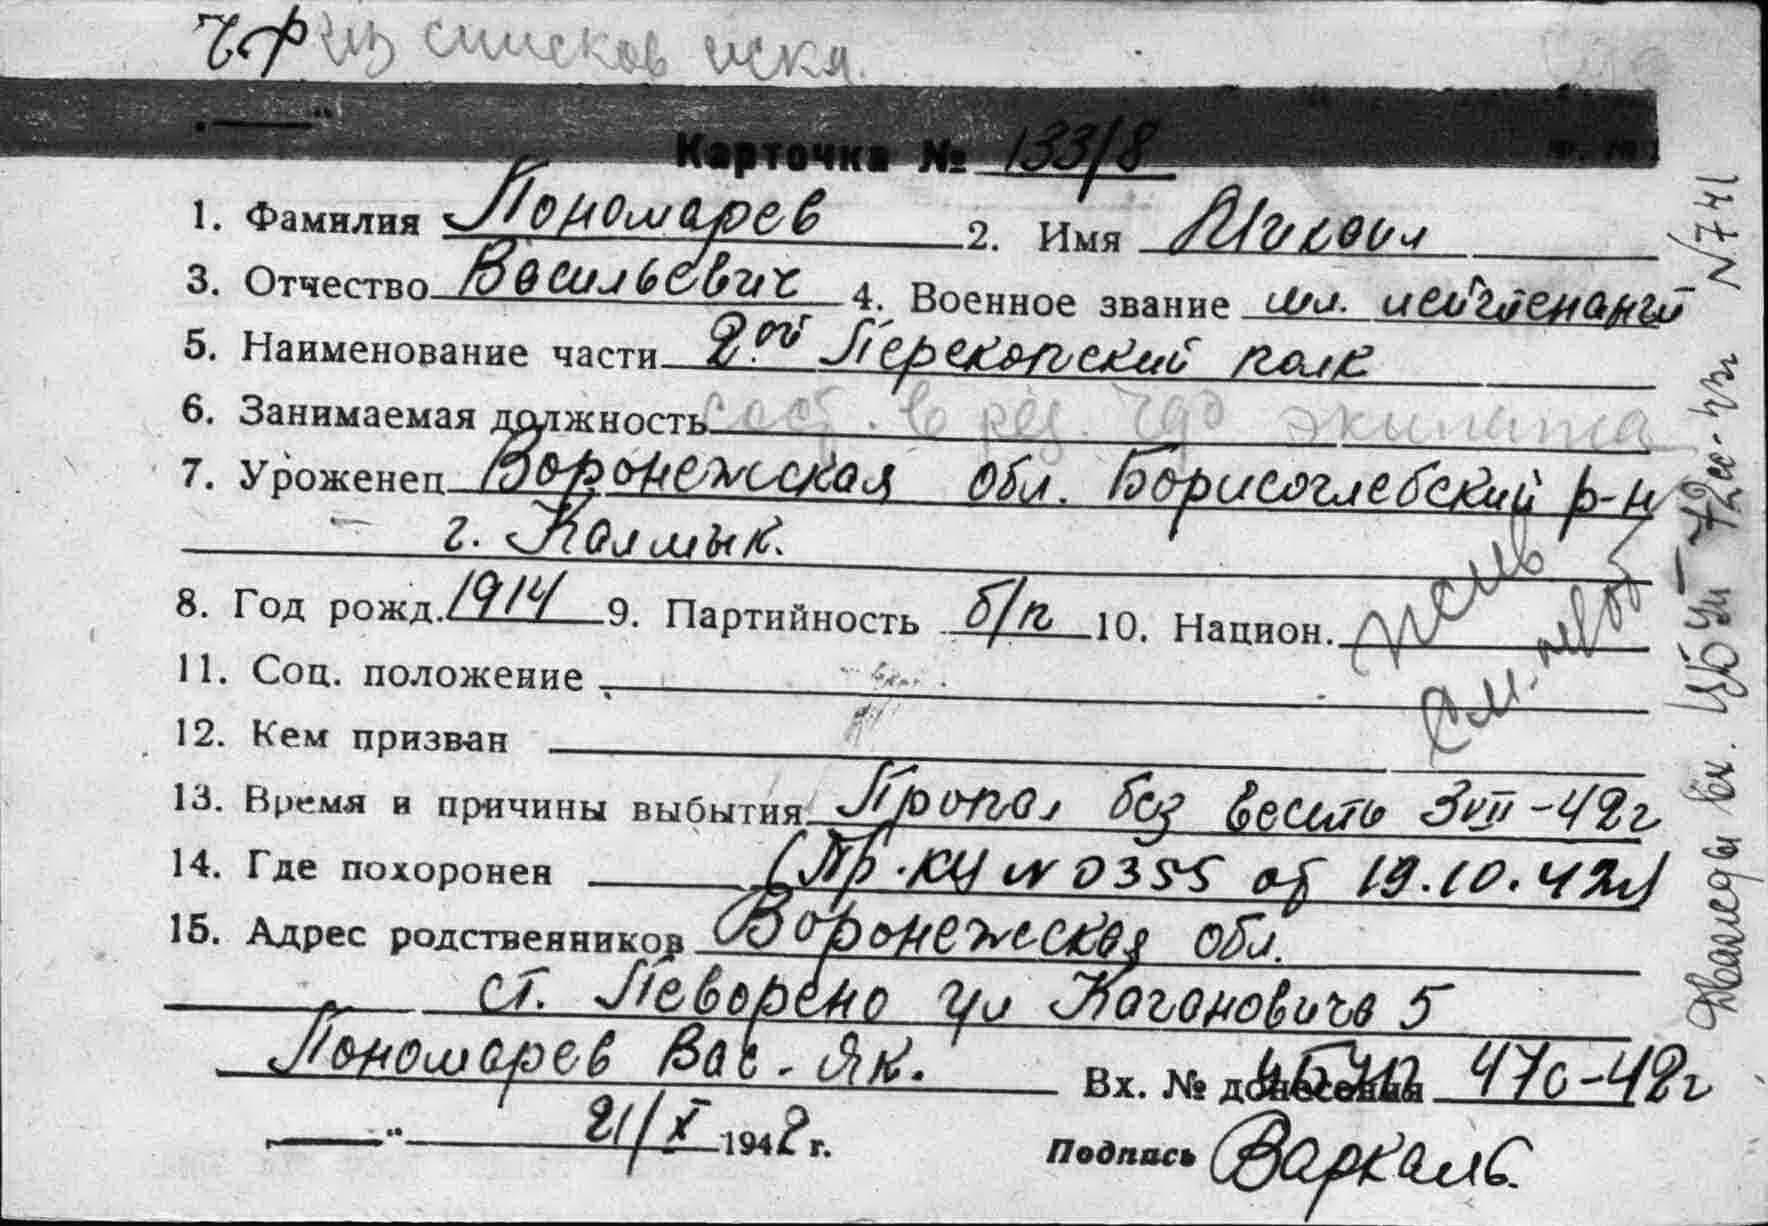 ЧФ из списков искл.
Карточка № 133/8
1. Фамилия Пономарев 2. Имя Михаил
3. Отчество Васильевич 4. Военное звание мл. лейтенант
5. Наименование части 2ой Перекопский полк
6. Занимаемая должность сост. в рез. ЧФ экипажа
7. Уроженец Воронежская обл. Борисоглебский р-н
г. Калмык.
8. Год рожд. 1914 9. Партийность б/п 10. Национ.
11. Соц. положение
12. Кем призван
13. Время и причины выбытия Пропал без вести 3 VII-42г
14. Где похоронен (Пр. КЧ N 0355 от 19.10.42г)
15. Адрес родственников Воронежская обл.
ст. Певорено ул Кагановича 5
Пономарев Вас. Як.
Вх. № донесения 47с-42г
21/X 1942 г. Подпись Варкаль
жив
см.
вх. 72сс-43г N741